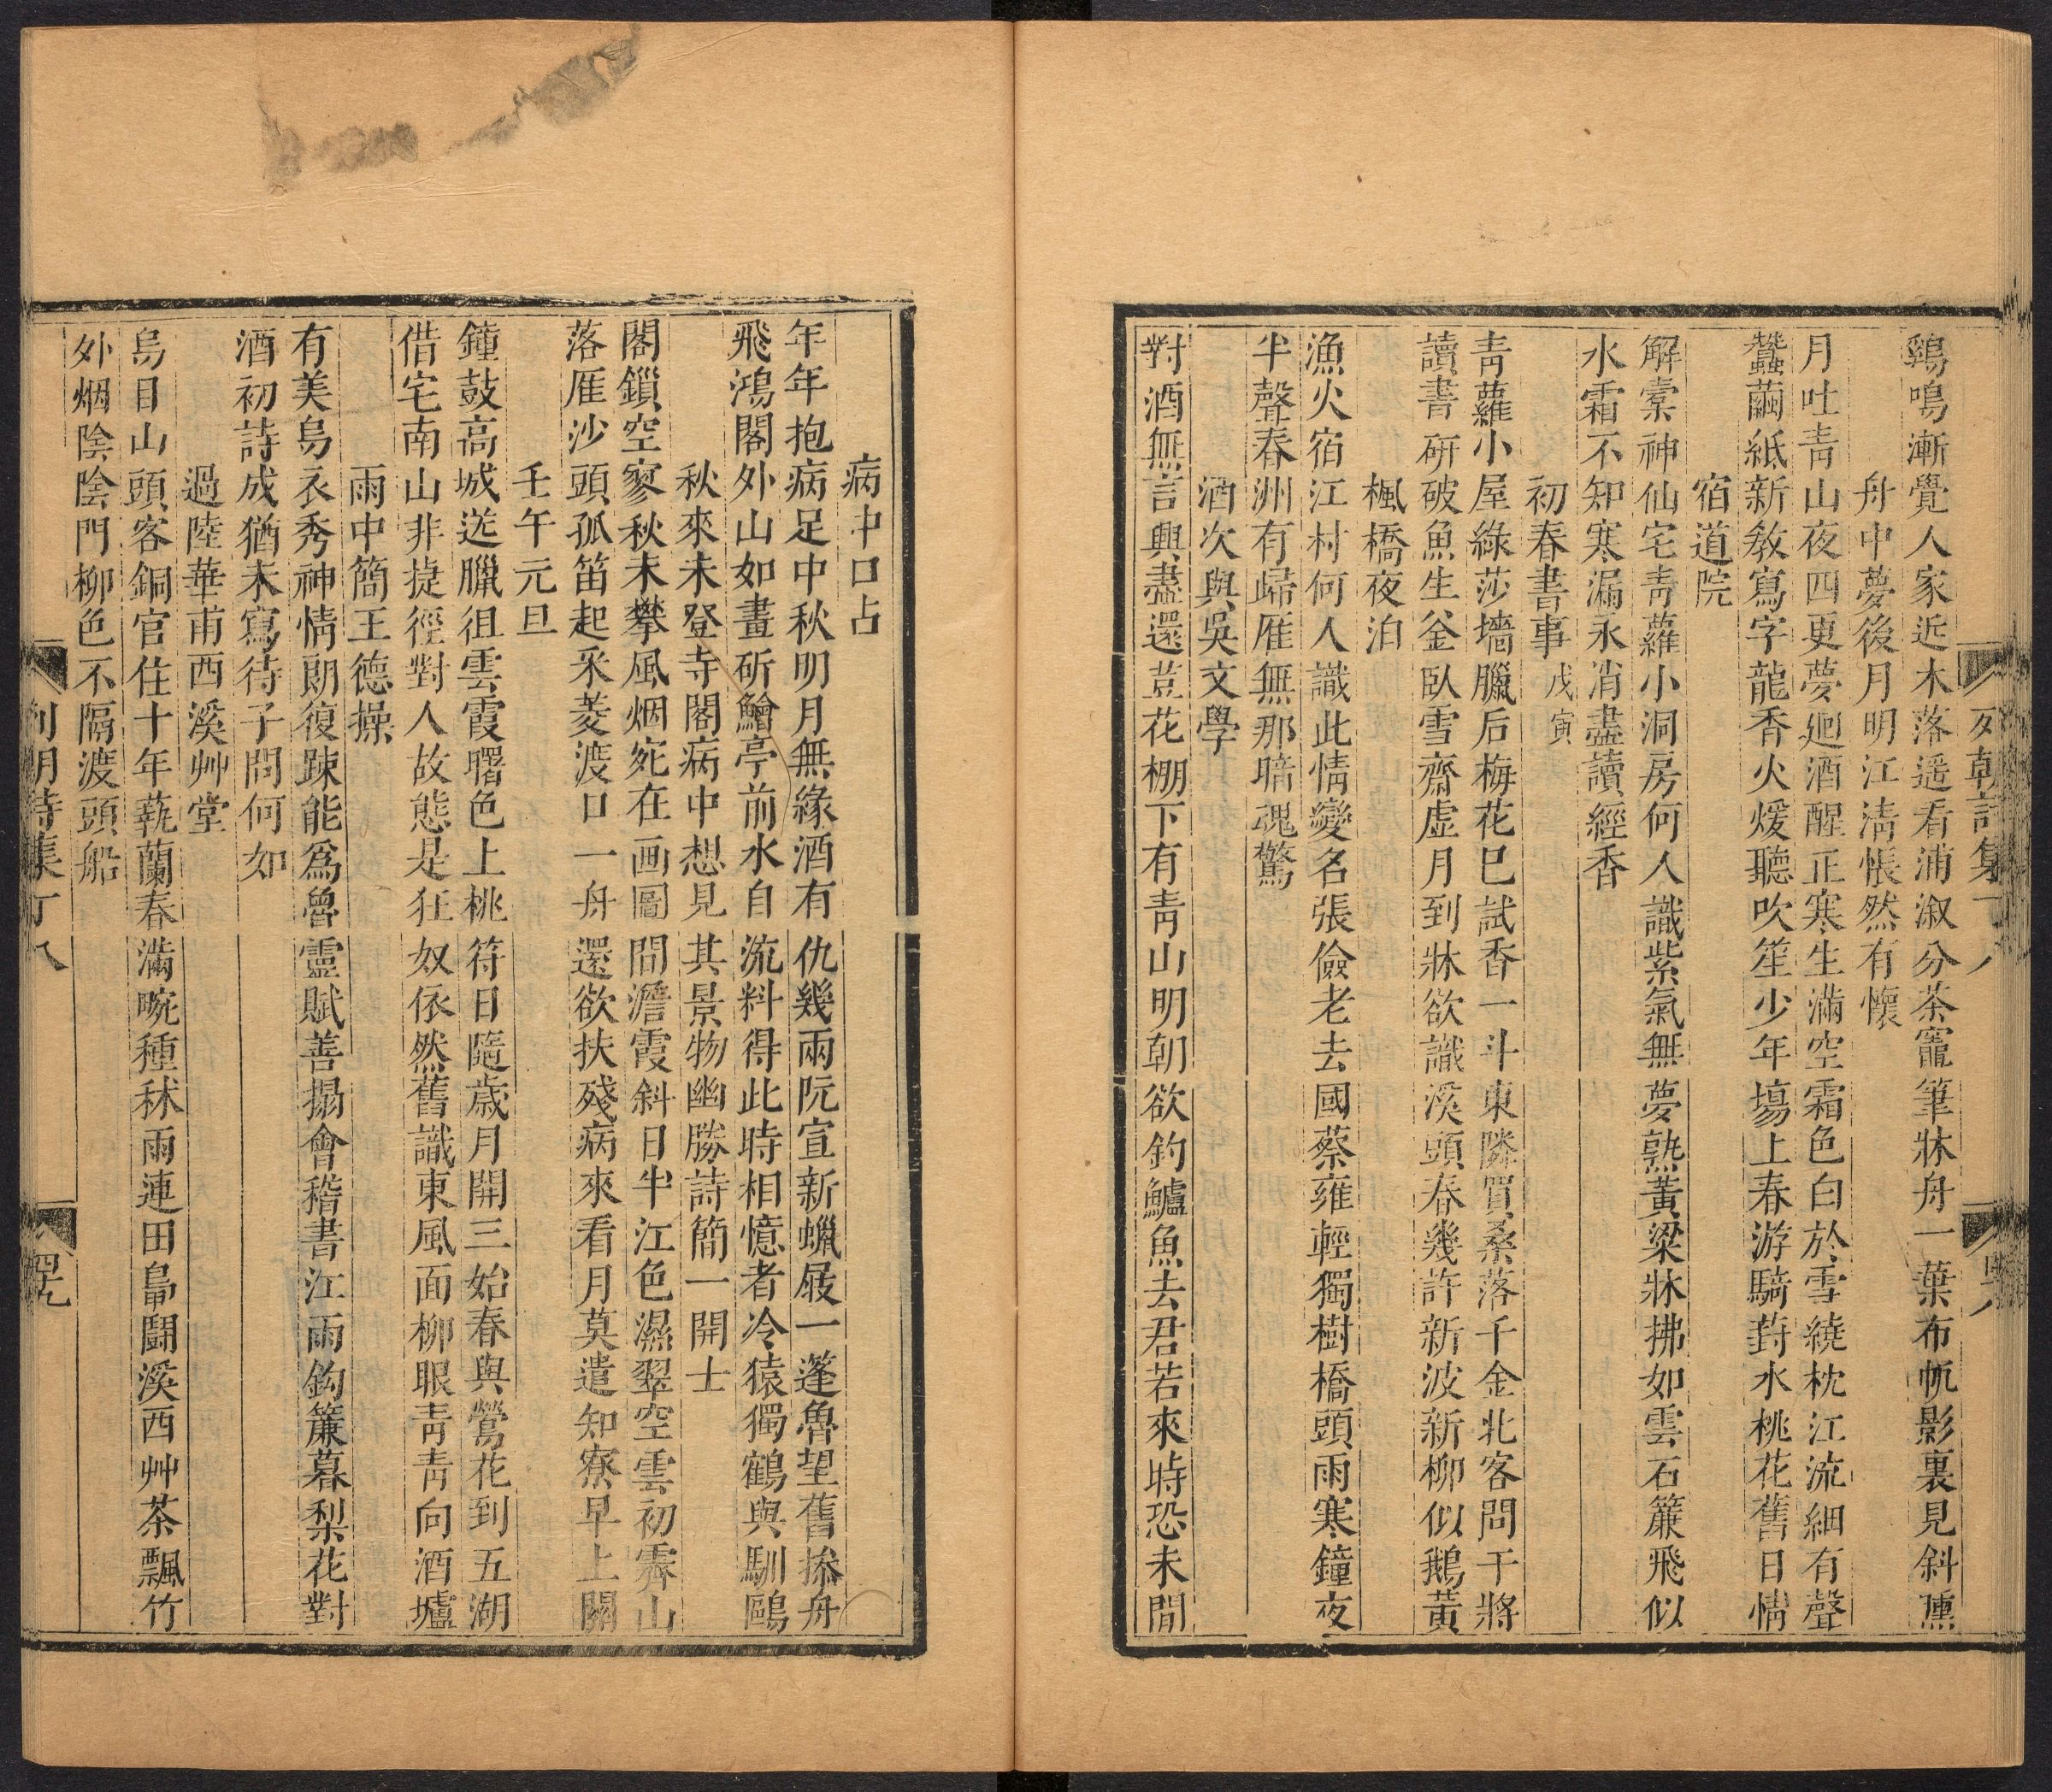 列朝詩集丁八
鷄鳴漸覺人家近木落遥看浦漵分茶竈筆牀舟一葉布帆影裏見斜曛
舟中夢後月明江清悵然有懷
月吐青山夜四更夢迴酒醒正寒生滿空霜色白於雪繞枕江流細有聲
蠶繭紙新教寫字龍香火煖聽吹笙少年塲上春游騎葑水桃花舊日情
宿道院
解橐神仙宅青蘿小洞房何人識紫氣無夢熟黃粱牀拂如雲石簾飛似
水霜不知寒漏永消盡讀經香
初春書事戊寅
青蘿小屋綠莎墻臘后梅花巳試香一斗東隣買桑落千金北客問干將
讀書研破魚生釜臥雪齋虚月到牀欲識溪頭春幾許新波新柳似鵝黃
楓橋夜泊
漁火宿江村何人識此情變名張儉老去國蔡雍輕獨樹橋頭雨寒鐘夜
半聲春洲有歸雁無那暗魂驚
酒次與吳文學
對酒無言興盡還荳花棚下有青山明朝欲釣鱸魚去君若來時恐未閒
病中口占
年年抱病足中秋明月無緣酒有仇幾兩阮宣新蠟屐一蓬魯望舊㮇舟
飛鴻閣外山如畫斫鱠亭前水自流料得此時相憶者冷猿獨鶴與馴鷗
秋來未登寺閣病中想見其景物幽勝詩簡一開士
閣鎖空寥秋未攀風烟宛在画圖間澹霞斜日半江色濕翠空雲初霽山
落雁沙頭孤笛起釆菱渡口一舟還欲扶殘病來看月莫遣知寮早上關
壬午元旦
鐘鼓高城送臘徂雲霞曙色上桃符日隨歲月開三始春與鶯花到五湖
借宅南山非捷徑對人故態是狂奴依然舊識東風面柳眼青青向酒壚
雨中簡王德操
有美烏衣秀神情朗復踈能爲魯靈賦善搨會稽書江雨鈎簾暮梨花對
酒初詩成猶未寫待子問何如
過陸華甫西溪艸堂
烏目山頭客銅官住十年蓺蘭春滿畹種秫雨連田鳥鬪溪西艸茶飄竹
外烟陰陰門柳色不隔渡頭船
列朝詩集丁八